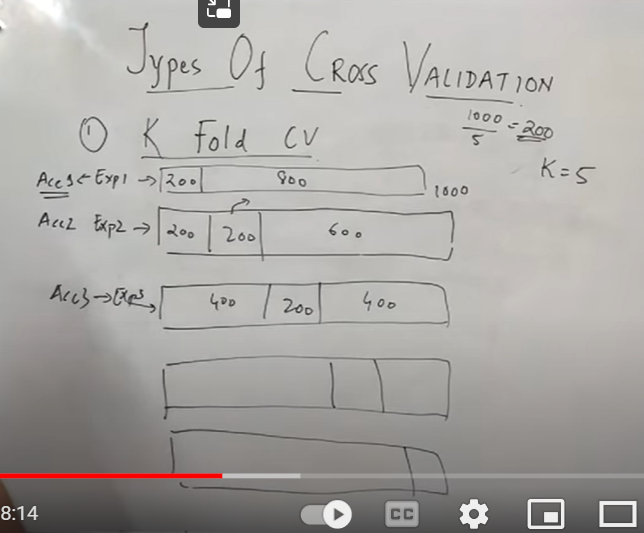 Types Of Cross Validation
① K Fold CV
1000/5 = 200
K=5
Acc1 ← Exp1 → 200 800 1000
Acc2 Exp2 → 200 200 600
Acc3 → Exp3 → 400 200 400
8:14
CC